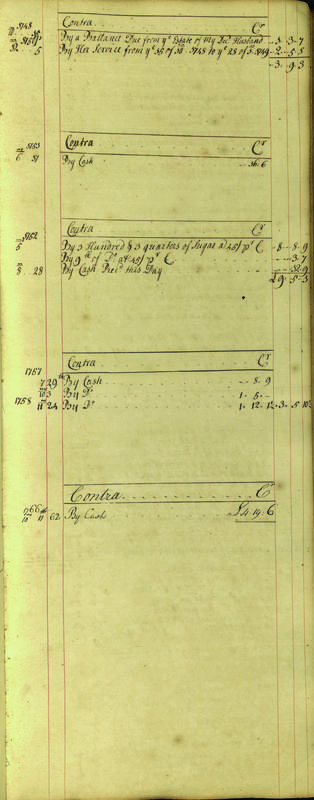 1748 Contra Cr
By a Ballance Due from ye Estate of my Dec. Husband 3 7
By Her Service from ye of 1748 to ye 28 of 1749 2 5 8
3 9 3
1753 Contra Cr
6 31 By Cash 6
1752 Contra Cr
By 3 Hundred & 3 quarters of Sugar at 45/ pr C 8 8 9
By 9 lb of Do at 45/ pr C 3 7
8 28 By Cash Recd this Day
9 5 3
1757 Contra Cr
7 29 By Cash 8 9
3 By Do 1 5
1758 11 24 By Do 1 12 12 3 5 10
Contra C
1766
10 11 62 By Cash £4 19 6